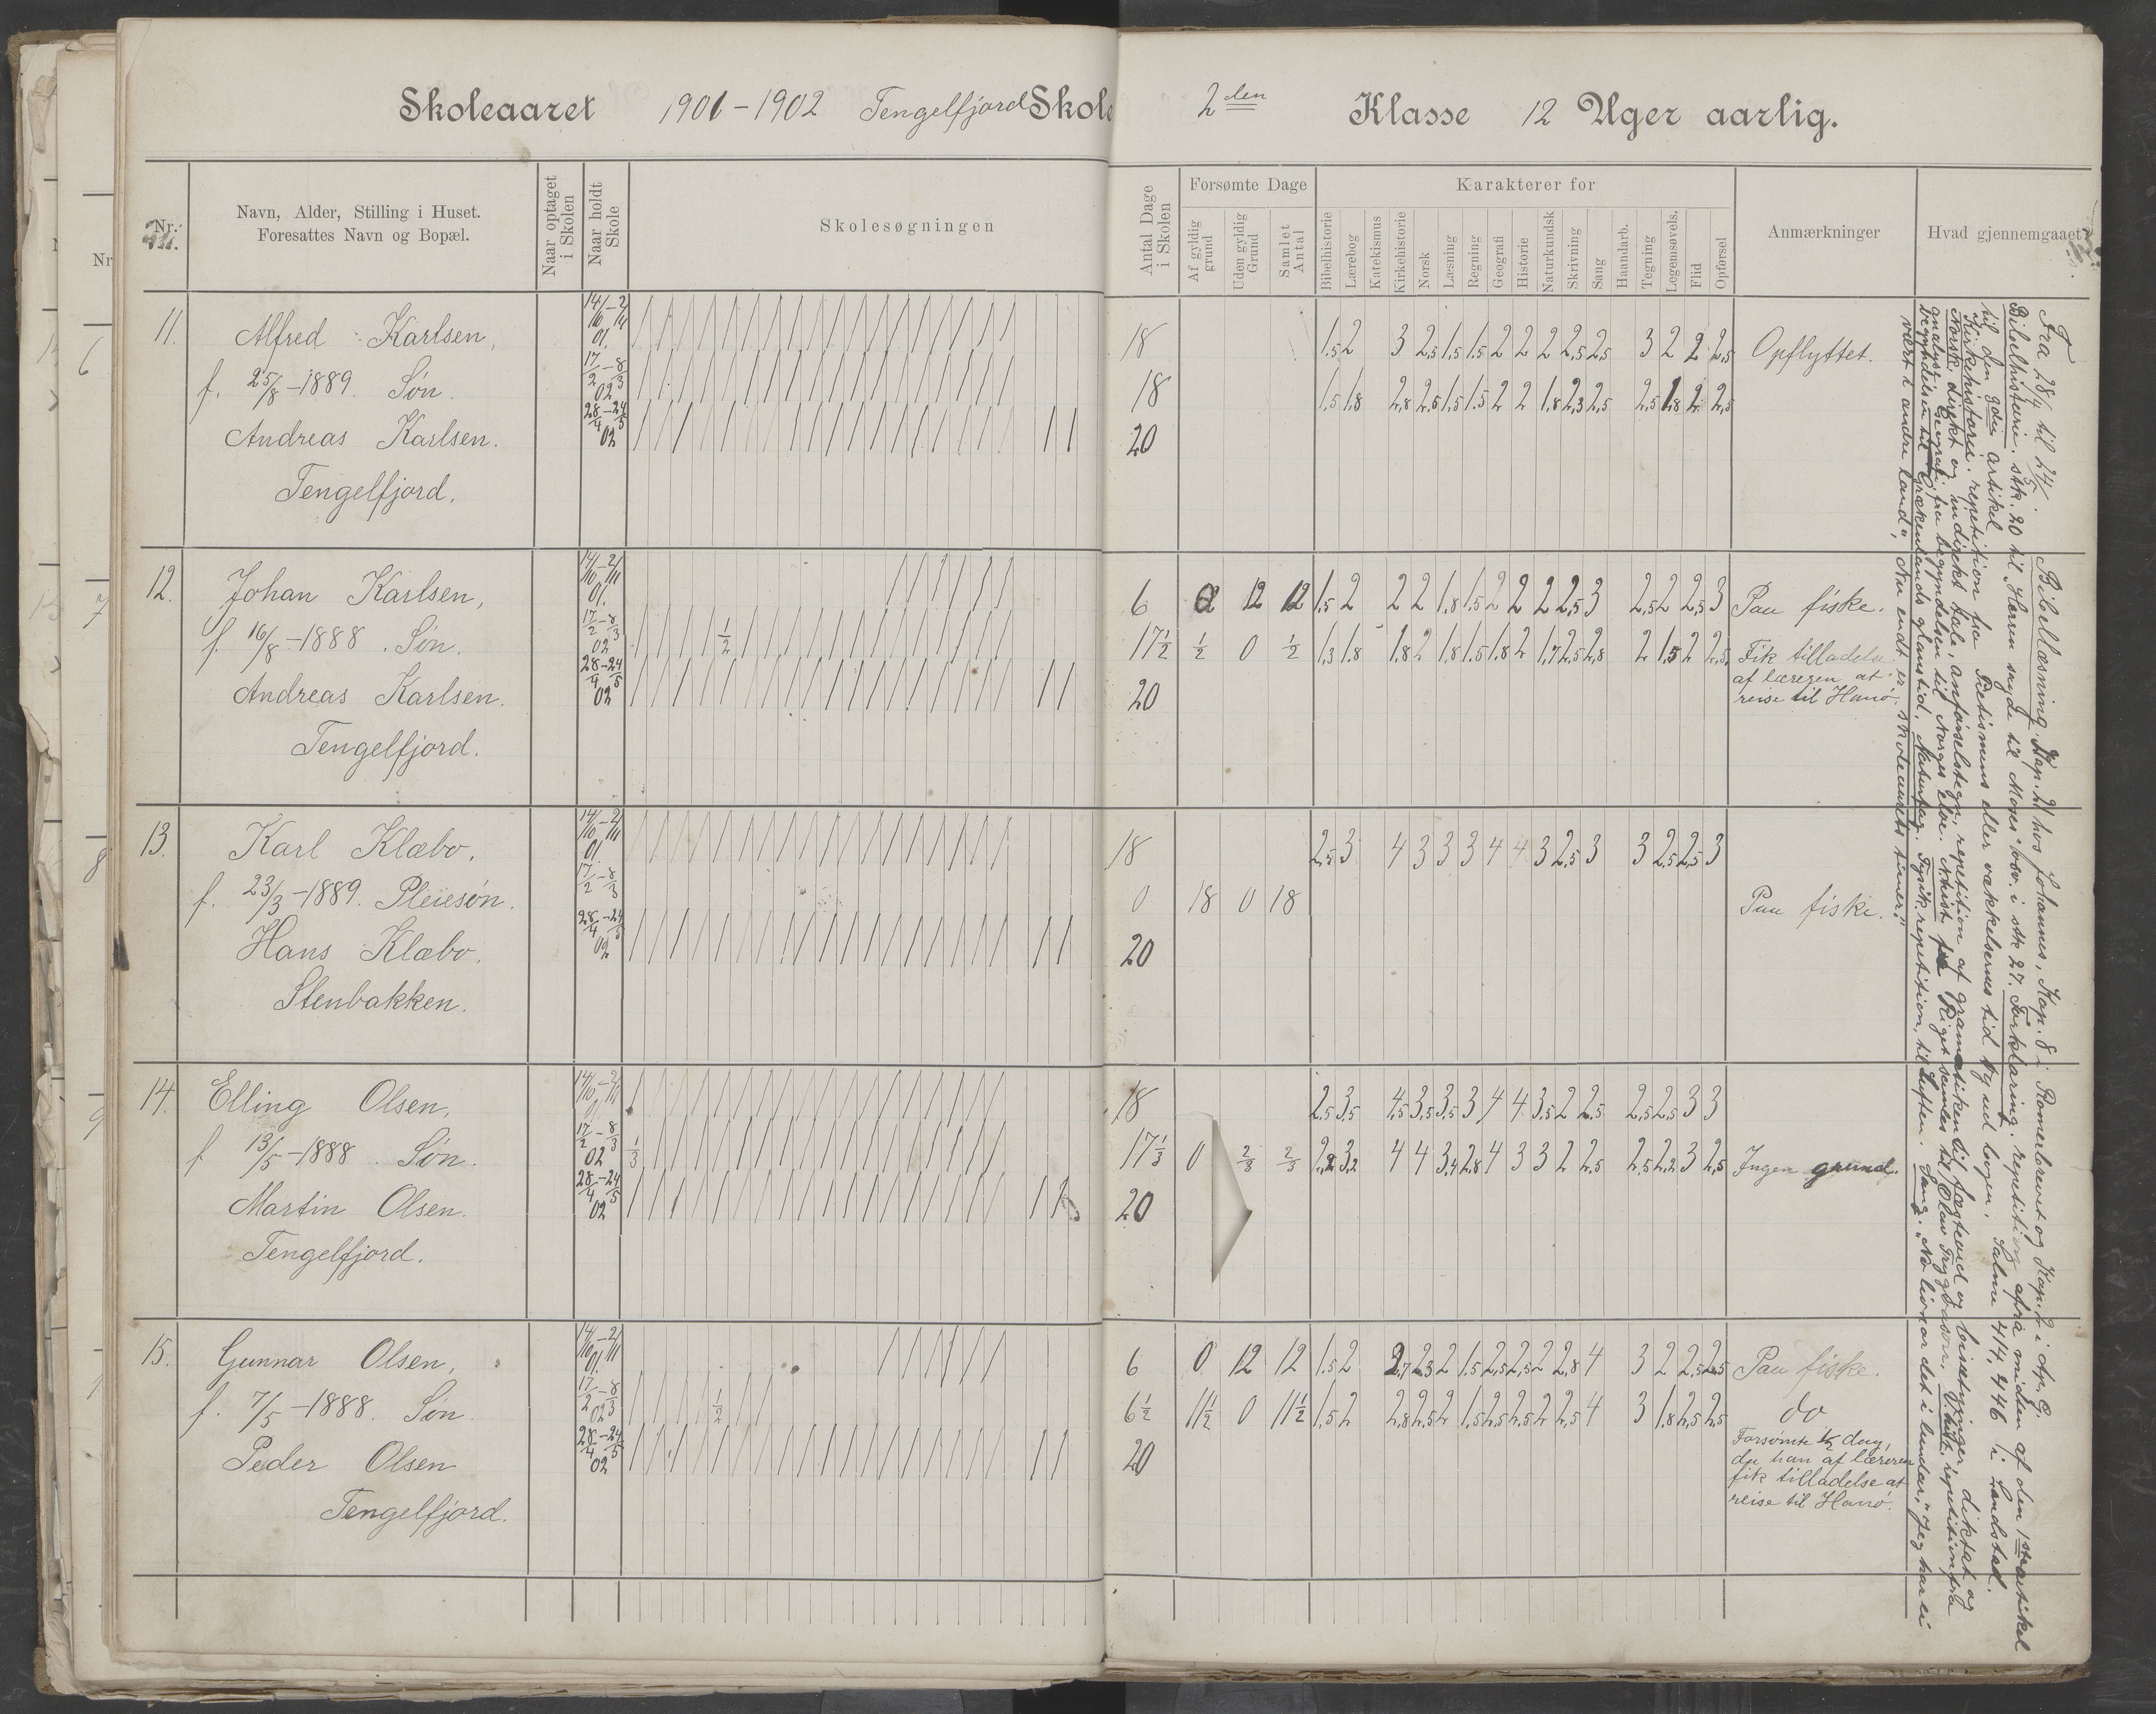 Skoleaaret 1901-1902 Tengelfjord Skole
2den Klasse 12 Uger aarlig.
Nr.
Navn, Alder, Stilling i Huset.
Foresattes Navn og Bopæl.
Naar optaget i Skolen
Naar holdt Skole
Skolesøgningen
Antal Dage i Skolen
Forsømte Dage
Af gyldig grund
Uden gyldig Grund
Samlet Antal
Karakterer for
Bibelhistorie
Lærebog
Katekismus
Kirkehistorie
Norsk
Læsning
Regning
Geografi
Historie
Naturkundsk
Skrivning
Sang
Haandarb.
Tegning
Legemsøvels.
Flid
Opførsel
Anmærkninger
Hvad gjennemgaaet
11. Alfred Karlsen,
f. 25/8-1889. Søn.
Andreas Karlsen.
Tengelfjord.
14/10-2/11 01.
17/2-8/3 02
28/4-24/5 02
18 1,5 2 3 2,5 1,5 1,5 2 2 2 2,5 2,5 3 2 2 2,5 Opflyttet.
18 1,5 1,8 2,8 2,5 1,5 1,5 2 2 1,8 2,3 2,5 2,5 1,8 2 2,5
20
12. Johan Karlsen,
f. 16/8-1888. Søn.
Andreas Karlsen.
Tengelfjord.
14/10-2/11 01.
17/2-8/3 02
28/4-24/5 02
1/2
6 0 12 12 1,5 2 2 2 1,8 1,5 2 2 2 2,5 3 2,5 2 2,5 3 Paa fiske.
17 1/2 1/2 0 1/2 1,3 1,8 1,8 2 1,8 1,5 1,8 2 1,7 2,5 2,8 2 1,5 2 2,5 Fik tilladelse
af læreren at
reise til Hanø.
20
13. Karl Klæbo.
f. 23/3-1889. Pleiesøn.
Hans Klæbo.
Stenbakken.
14/10-2/11 01.
17/2-8/3
28/4-24/5 02
18 2,5 3 4 3 3 3 4 4 3 2,5 3 3 2,5 2,5 3
0 18 0 18 Paa fiske.
20
14. Elling Olsen,
f. 13/5-1888. Søn.
Martin Olsen.
Tengelfjord.
14/10-2/11 01.
17/2-8/3 02
28/4-24/5 02
1/3
18 2,5 3,5 4,5 3,5 3,5 3 4 4 3,5 2 2,5 2,5 2,5 3 3
17 1/3 0 2/3 2/3 2,2 3,2 4 4 3,4 2,8 4 3 3 2 2,5 2,5 2,2 3 2,5 Ingen grund.
20
15. Gunnar Olsen,
f. 7/5-1888. Søn.
Peder Olsen
Tengelfjord.
14/10-2/11 01.
17/2-8/3 02
28/4-24/5 02
1/2
6 0 12 12 1,5 2 2,7 2,3 2 1,5 2,5 2,5 2 2,8 4 3 2 2,5 2,5 Paa fiske.
6 1/2 11 1/2 0 11 1/2 1,5 2 2,8 2,5 2 1,5 2,5 2,5 2 2,5 4 3 1,8 2,5 2,5 do
20 Forsømte 1/2 dag,
da han af læreren
fik tilladelse at
reise til Hanø.
Fra 28/4 til 24/5. Bibellæsning. Kap. 21 hos Johannes, Kap. 8 i Romerbrevet og Kap. 2 i Ap. G.
Bibelhistorie. stk. 20 til Herren skyde til Moses' lov. i stk 27. Forklaring. repetition fra midten af den 1ste artikel
til den 3die artikel
Kirkehistorie. repetition fra Pietismens eller vækkelsernes tid og ud bogen. Salme 414, 446 i Landstad.
Norsk. direkt og indirekt tale, anførselstegn, repetition af gramatiken til fasteord og bisætninger, diktat og
analyse. Geografi fra begyndelsen til Norges elve. N. hist. fra Riget samles til Olav Trygvason, V. hist. repetition fra
begyndelsen til Grækenlands glanstid. Naturfag. Fysik. repetition, til Luften. Sang. "No livnar det i lundar," "Jeg har ei
vært i andre land", "Nu endt er skoleaarets timer."